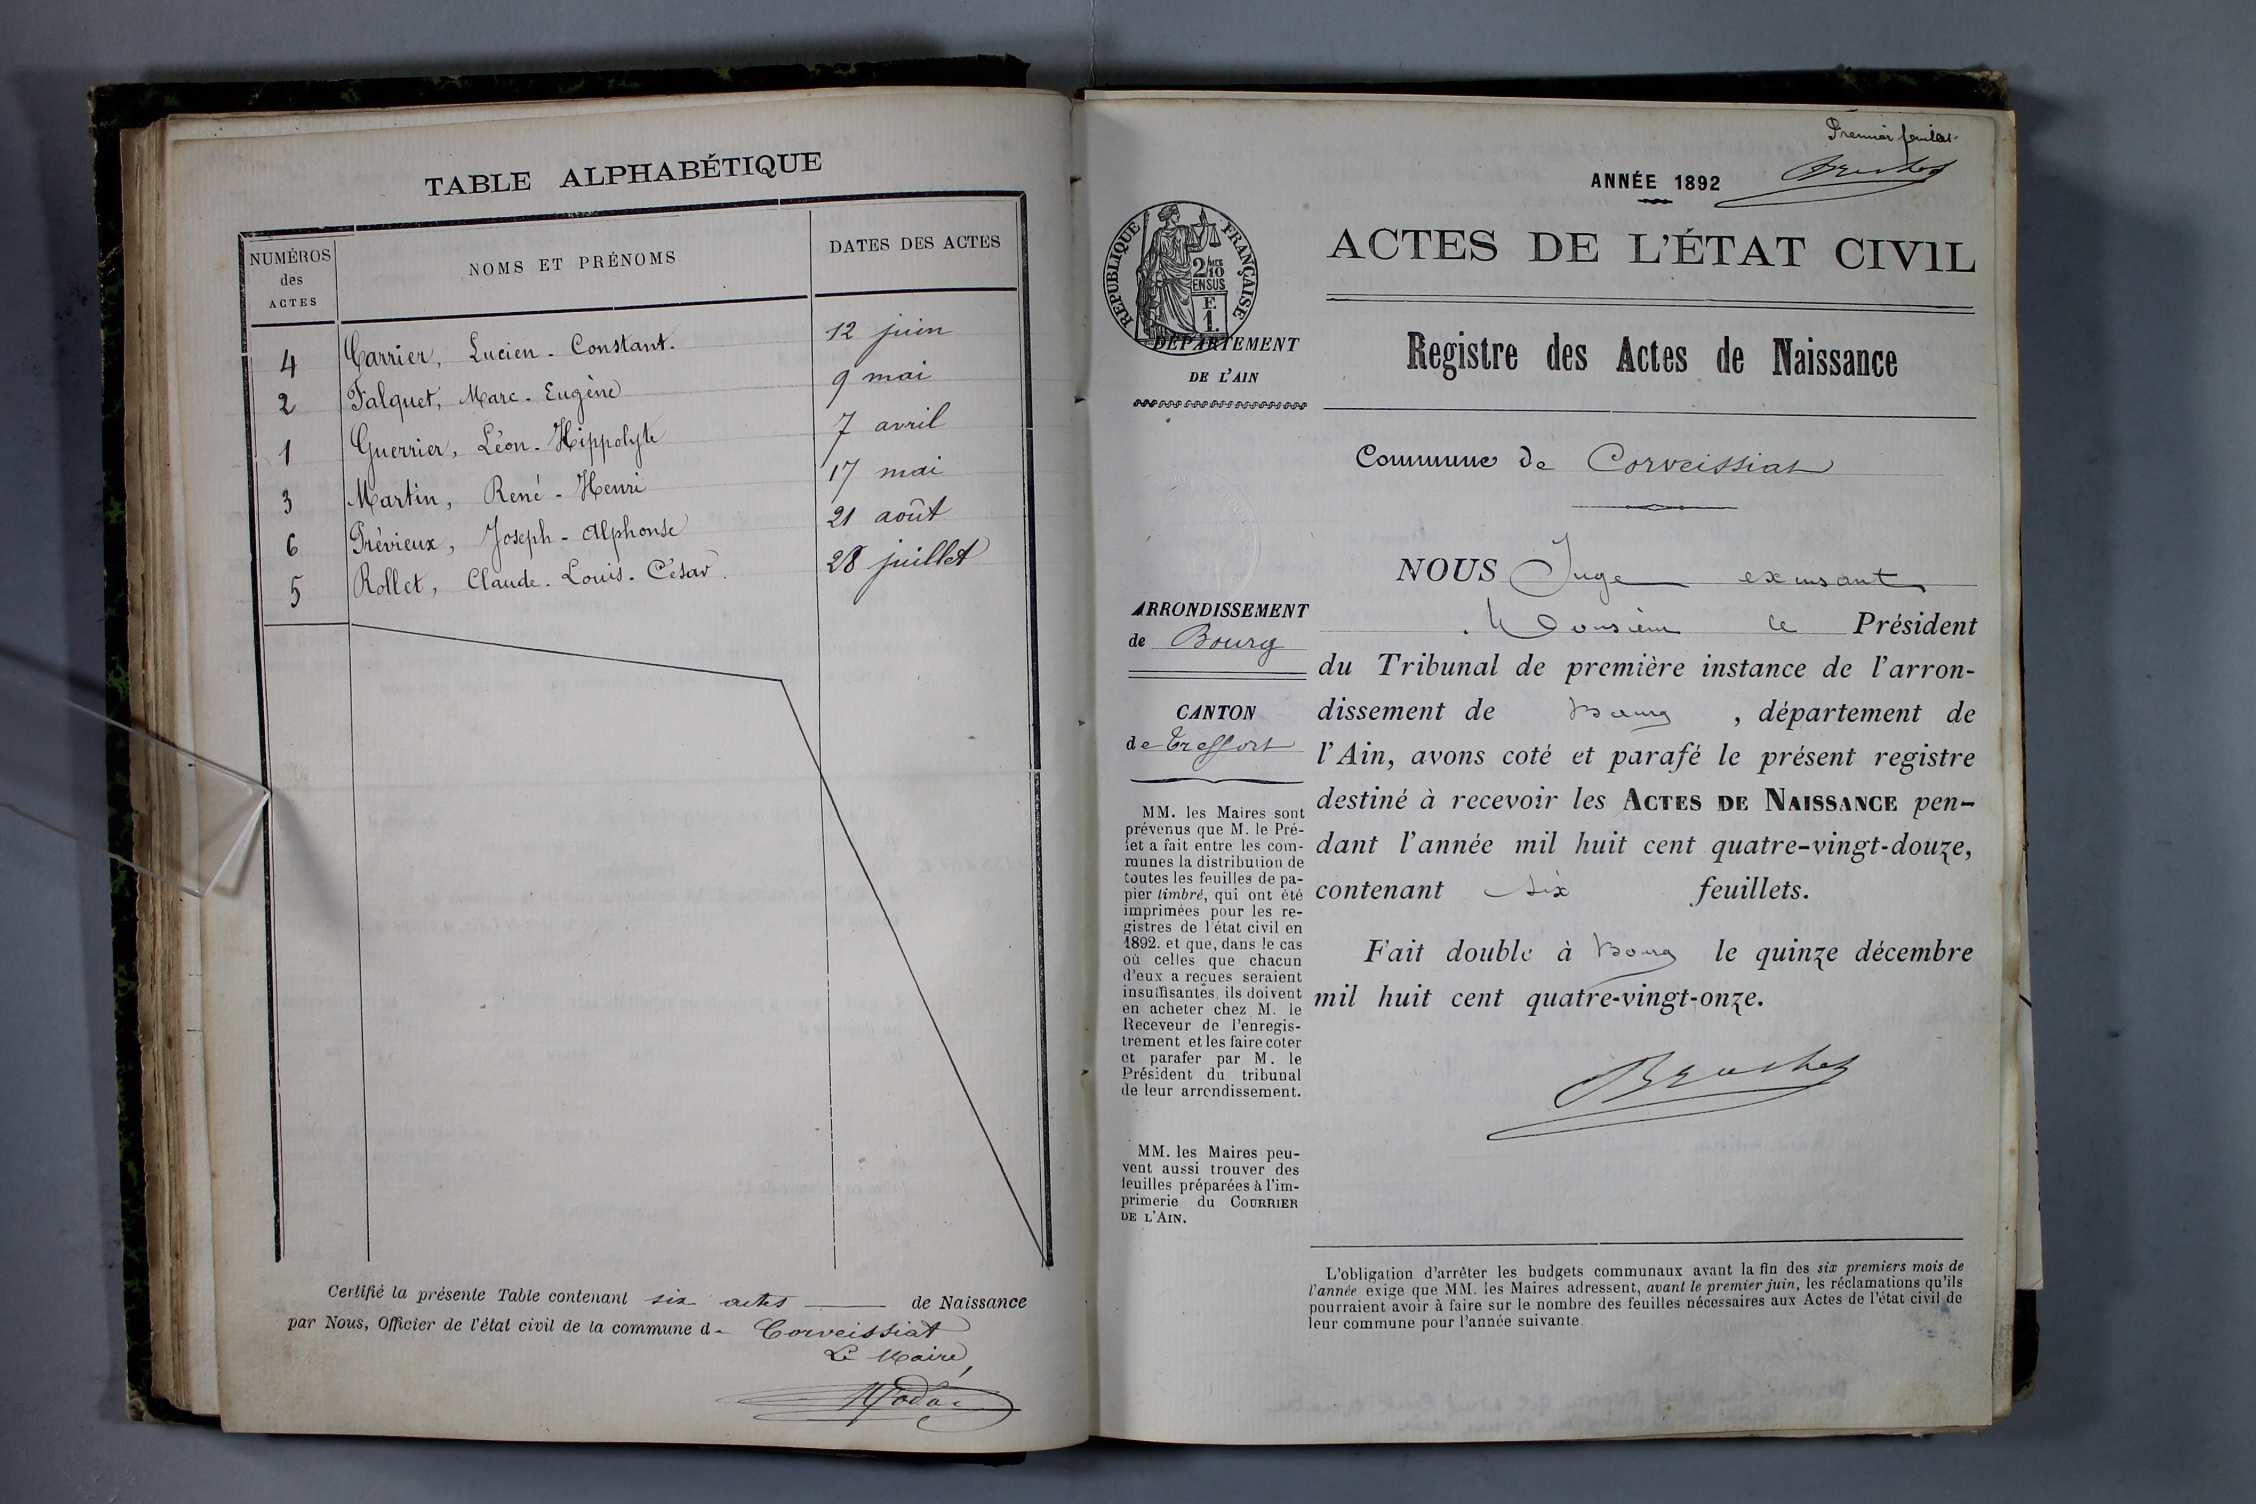 TABLE ALPHABÉTIQUE
NUMÉROS
des
ACTES
NOMS ET PRÉNOMS
DATES DES ACTES
4 Carrier, Lucien-Constant. 12 juin
2 Falquet, Marc-Eugène 9 mai
1 Guerrier, Léon-Hippolyte 7 avril
3 Martin, René-Henri 17 mai
6 Prévieux, Joseph-Alphonse 21 août
5 Rollet, Claude-Louis-César. 28 juillet
Certifié la présente Table contenant six actes de Naissance
par Nous, Officier de l'état civil de la commune de Corveissiat
Le Maire,
Premier
ANNÉE 1892
ACTES DE L'ÉTAT CIVIL
RÉPUBLIQUE FRANÇAISE
2/10
EN SUS
F
1.
DÉPARTEMENT
DE L'AIN
Registre des Actes de Naissance
Commune de Corveissiat
ARRONDISSEMENT
de Bourg
CANTON
de Treffort
MM. les Maires sont
prévenus que M. le Pré-
fet a fait entre les com-
munes la distribution de
toutes les feuilles de pa-
pier timbré, qui ont été
imprimées pour les re-
gistres de l'état civil en
1892. et que, dans le cas
où celles que chacun
d'eux a reçues seraient
insuffisantes, ils doivent
en acheter chez M. le
Receveur de l'enregis-
trement et les faire coter
et parafer par M. le
Président du tribunal
de leur arrondissement.
MM. les Maires peu-
vent aussi trouver des
feuilles préparées à l'im-
primerie du COURRIER
DE L'AIN.
NOUS Juge
Monsieur le Président
du Tribunal de première instance de l'arron-
dissement de Bourg, département de
l'Ain, avons coté et parafé le présent registre
destiné à recevoir les ACTES DE NAISSANCE pen-
dant l'année mil huit cent quatre-vingt-douze,
contenant six feuillets.
Fait double à Bourg le quinze décembre
mil huit cent quatre-vingt-onze.
L'obligation d'arrêter les budgets communaux avant la fin des six premiers mois de
l'année exige que MM. les Maires adressent, avant le premier juin, les réclamations qu'ils
pourraient avoir à faire sur le nombre des feuilles nécessaires aux Actes de l'état civil de
leur commune pour l'année suivante.